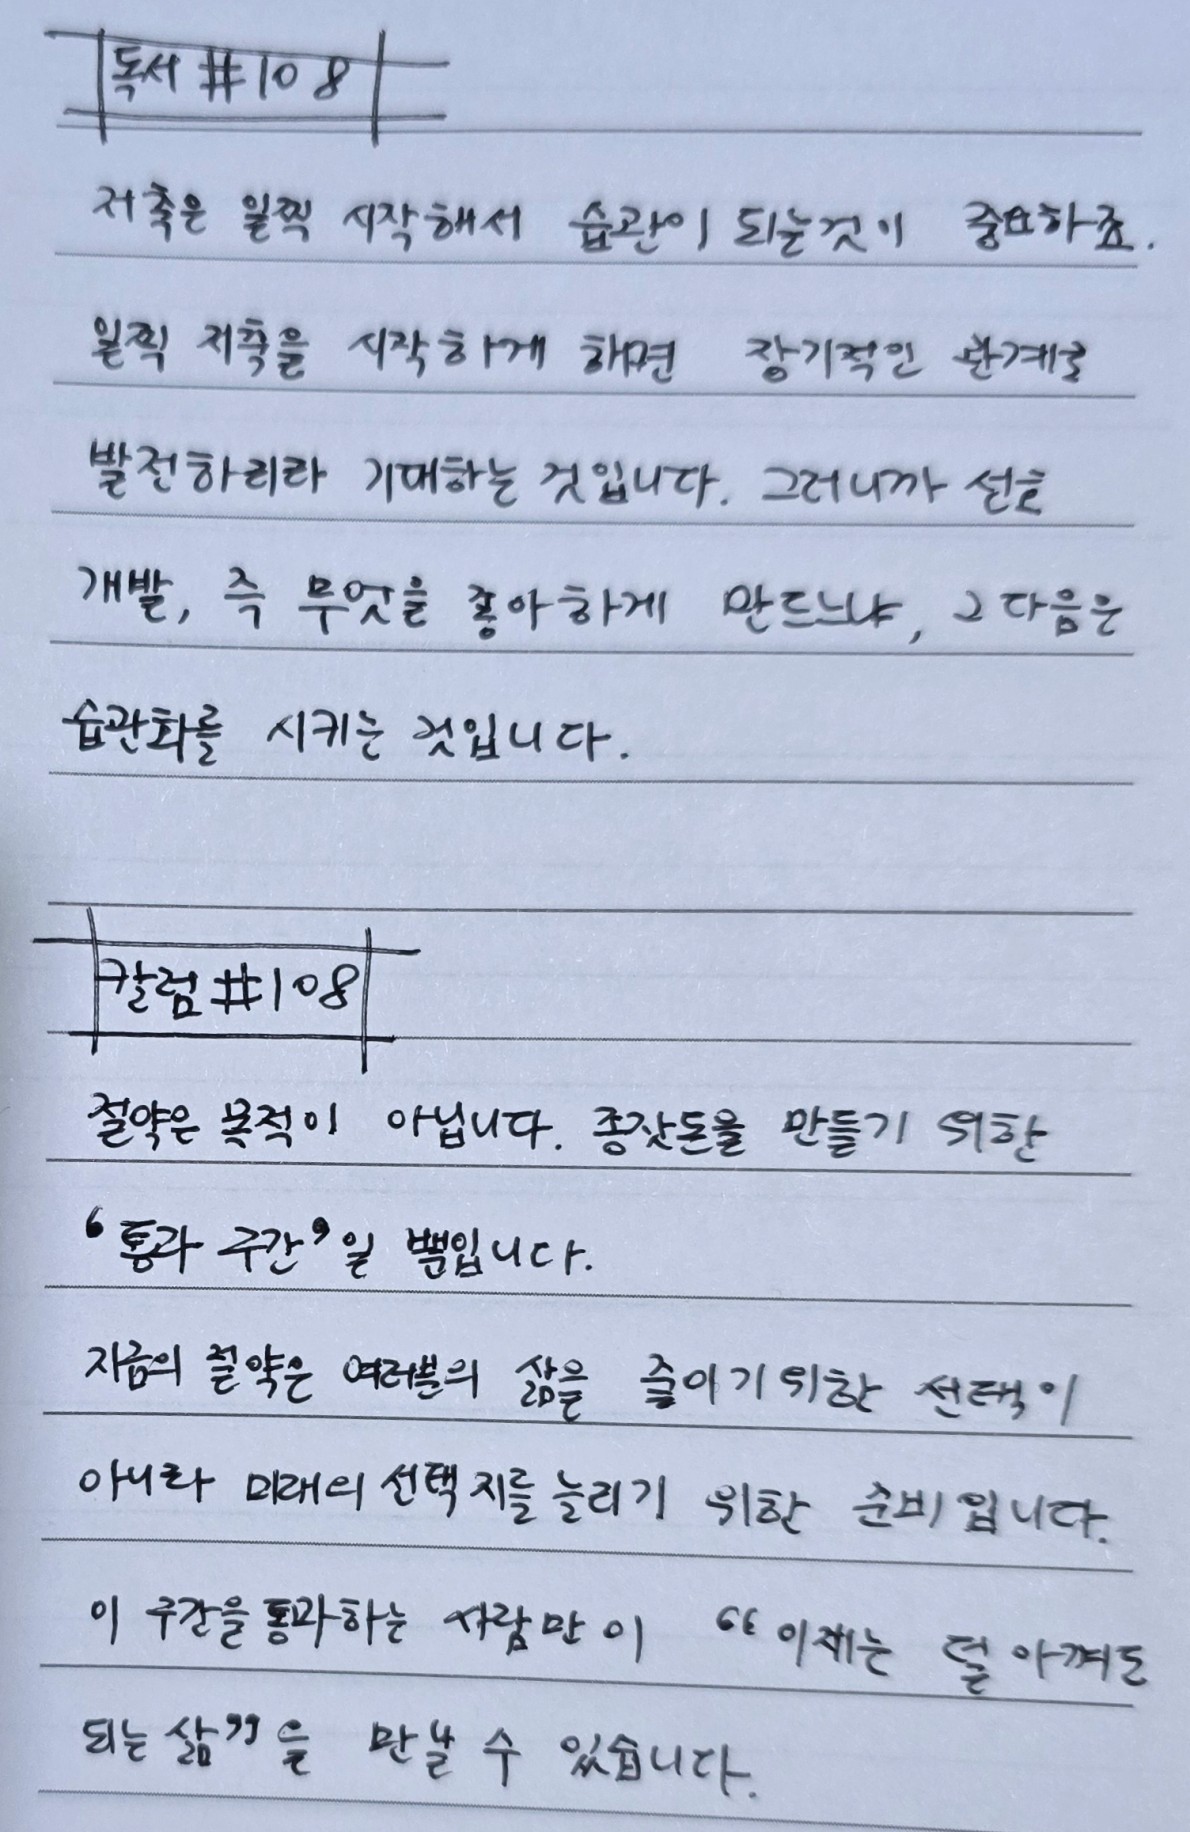 독서 #108
저축은 일찍 시작해서 습관이 되는것이 중요하죠.
일찍 저축을 시작하게 하면 장기적인 관계로
발전하리라 기대하는 것입니다. 그러니까 선호
개발, 즉 무엇을 좋아하게 만드느냐, 그 다음은
습관화를 시키는 것입니다.
칼럼 #108
절약은 목적이 아닙니다. 종잣돈을 만들기 위한
‘통과 구간’일 뿐입니다.
지금의 절약은 여러분의 삶을 줄이기 위한 선택이
아니라 미래의 선택지를 늘리기 위한 준비입니다.
이 구간을 통과하는 사람만이 “이제는 덜 아껴도
되는 삶”을 만날 수 있습니다.